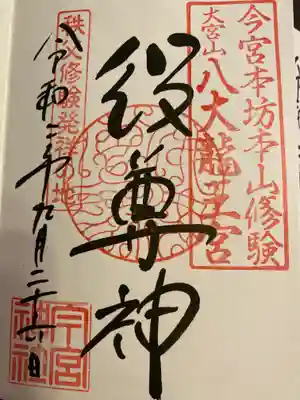 今宮本坊本山修験
大宮山
八大龍王宮
役尊神
秩父修験発祥の地
令和二年九月二十六日
今宮
神社